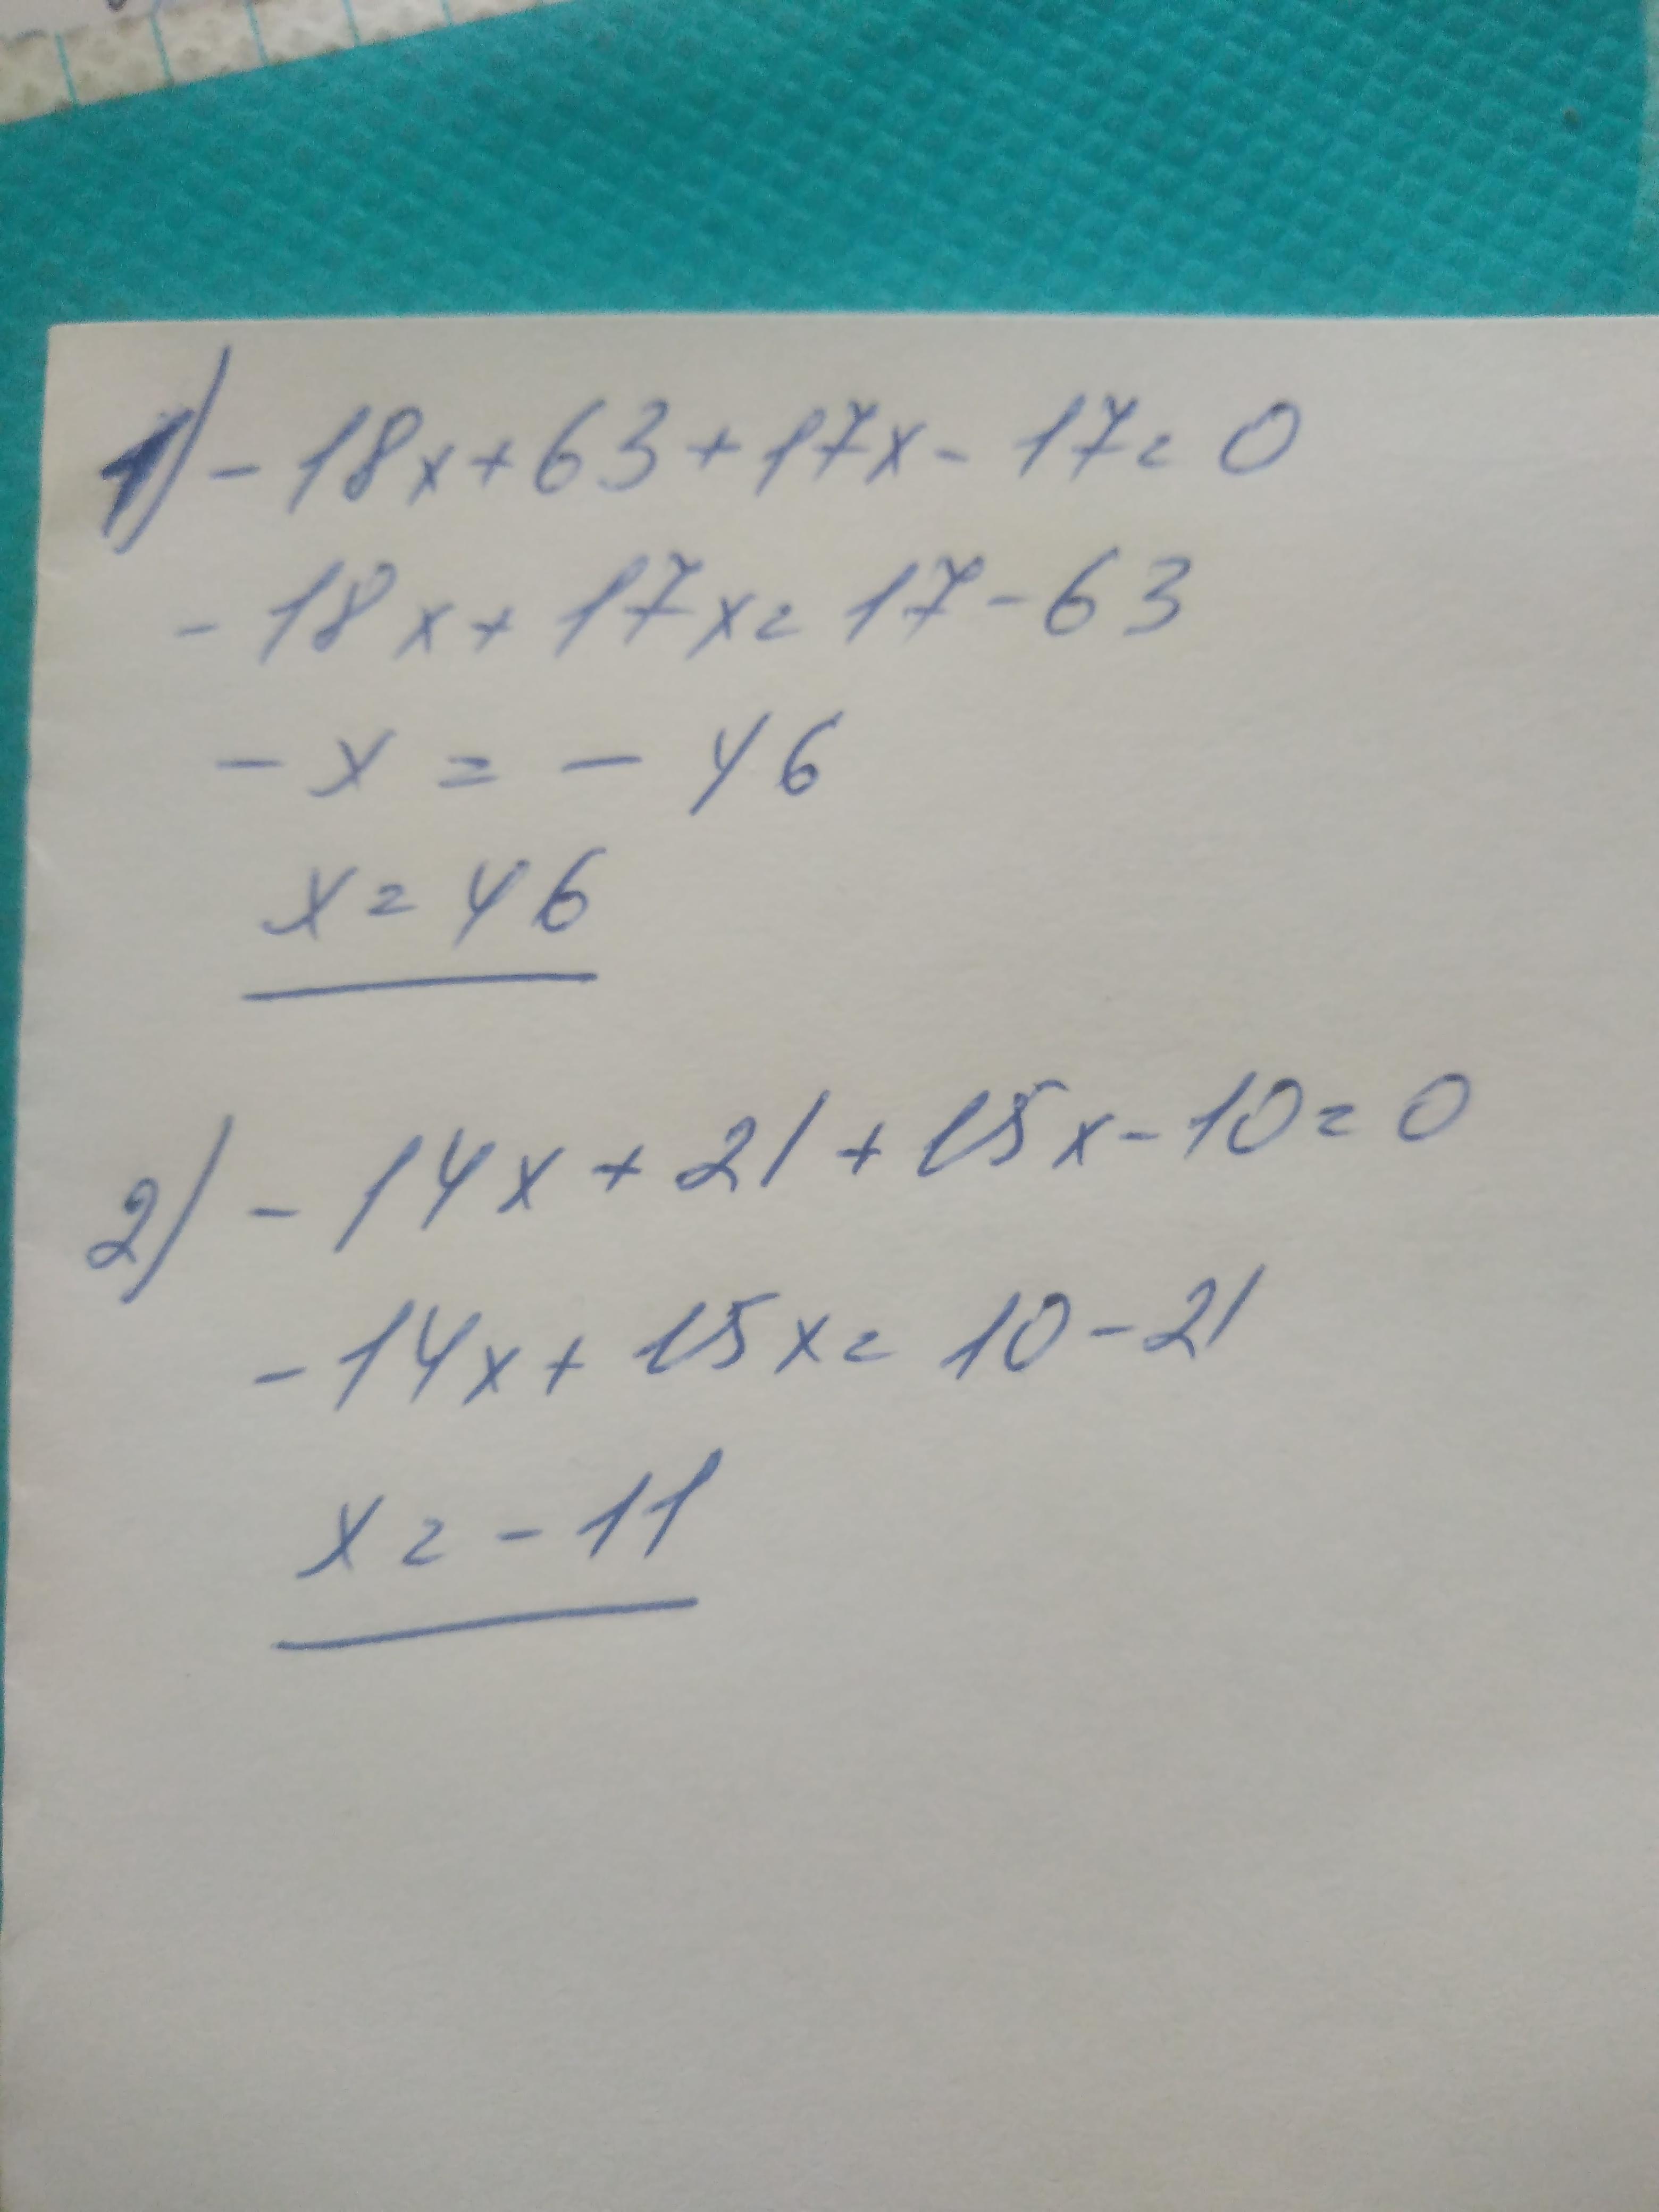 1) -18x+63+17x-17=0
-18x+17x=17-63
-x=-46
x=46
2) -14x+21+15x-10=0
-14x+15x=10-21
x=-11